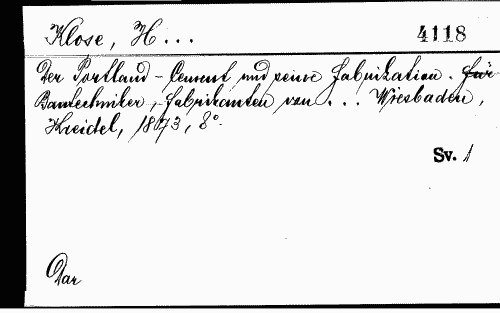 Klose, H... 4118
Der Portland-Cement und seine Fabrikation. Für
Bautechniker, Fabrikanten von ... Wiesbaden,
Kreidel, 1873, 8°.
Sv. 1
Dar